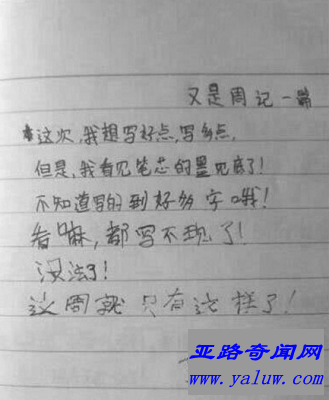 又是周记一篇
这次,我想写好点,写多点,
但是,我看见笔芯的墨见底了!
不知道写的到好多字哦!
看嘛,都写不现了!
没法了!
这周就只有这样了!
亚路奇闻网
www.yaluw.com